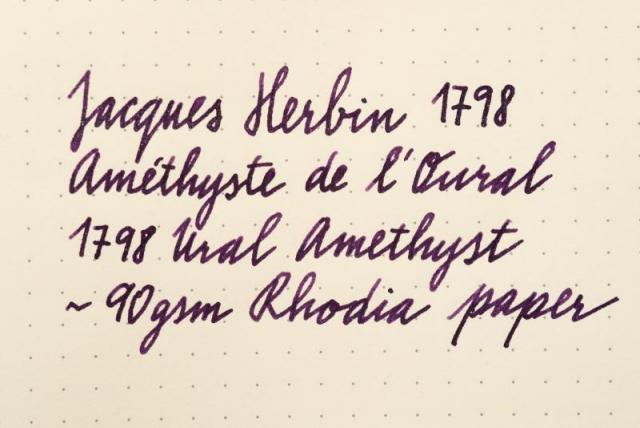 Jacques Herbin 1798
Améthyste de l'Oural
1798 Ural Amethyst
~ 90gsm Rhodia paper